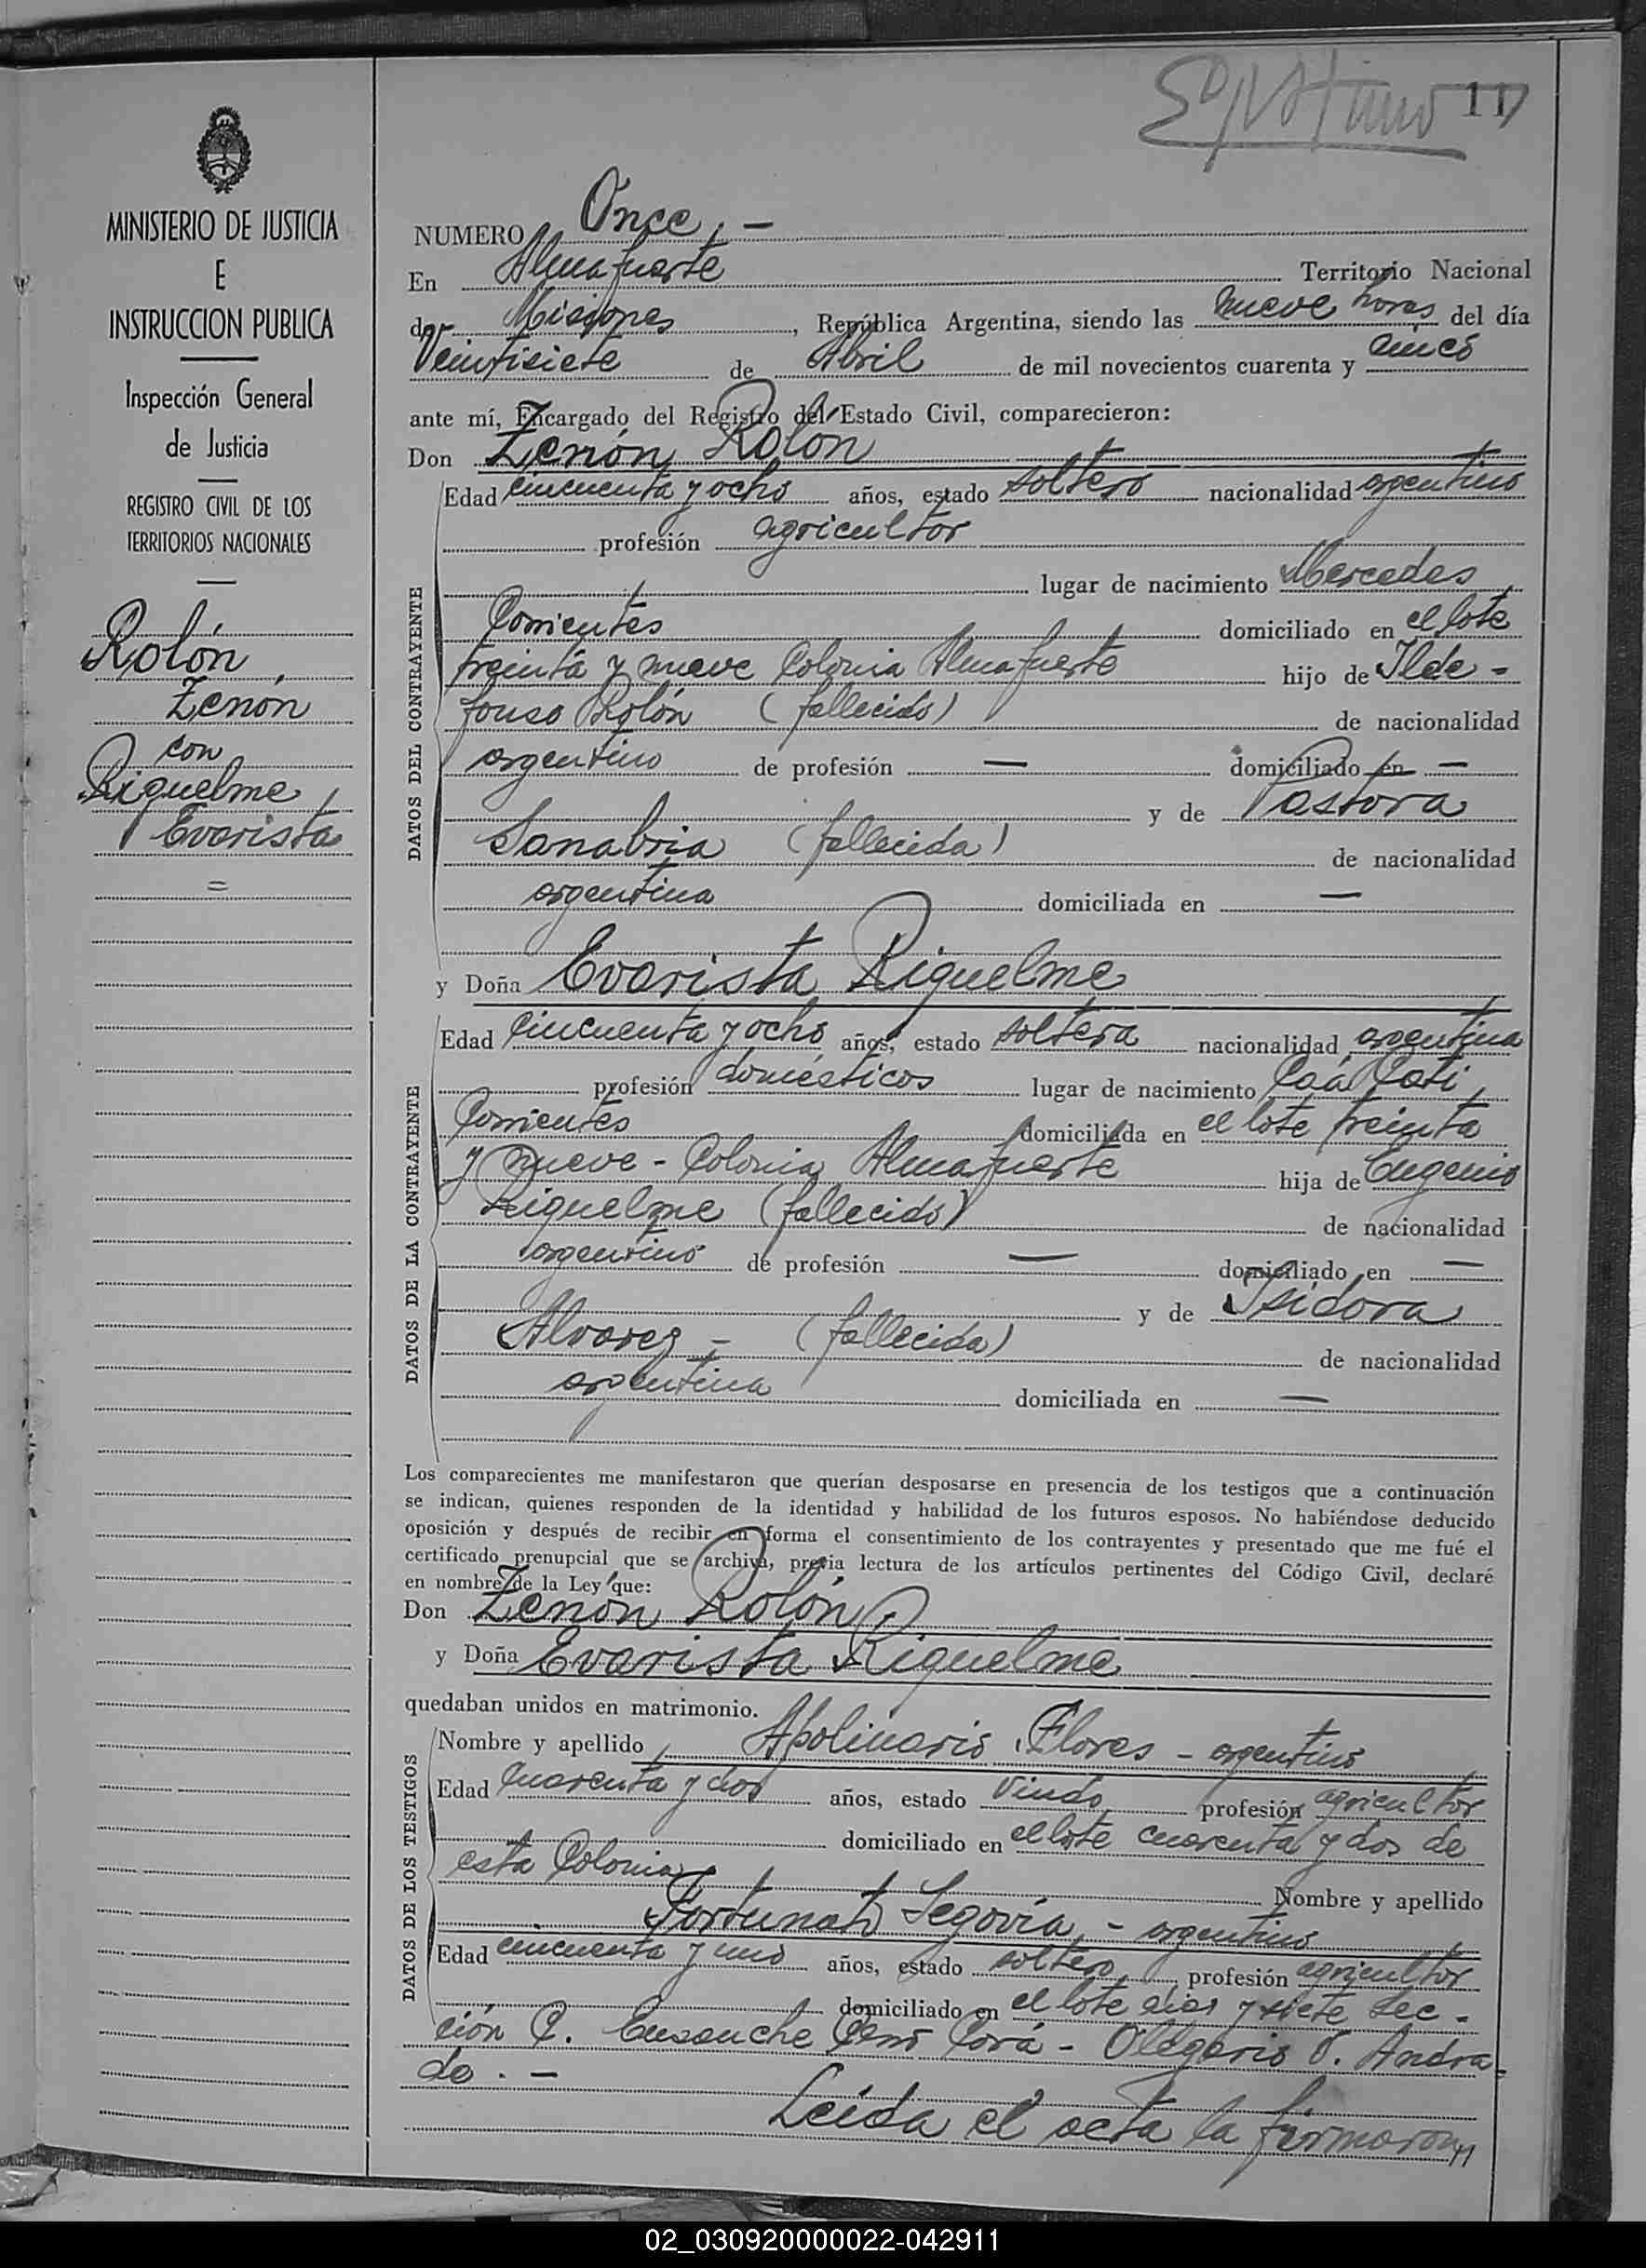 11
MINISTERIO DE JUSTICIA
E
INSTRUCCION PUBLICA
Inspección General
de Justicia
REGISTRO CIVIL DE LOS
TERRITORIOS NACIONALES
Rolón,
Zenón
con
Riquelme,
Evarista
=
NUMERO Once, -
En Almafuerte Territorio Nacional
de Misiones, República Argentina, siendo las nueve horas del día
Veintisiete de Abril de mil novecientos cuarenta y cinco
ante mí, Encargado del Registro del Estado Civil, comparecieron:
Don Zenón Rolón
DATOS DEL CONTRAYENTE
Edad cincuenta y ocho años, estado soltero nacionalidad argentino
profesión agricultor
lugar de nacimiento Mercedes,
Corrientes domiciliado en el lote
treinta y nueve Colonia Almafuerte hijo de Ilde-
fonso Rolón (fallecido) de nacionalidad
argentino de profesión — domiciliado en —
y de Pastora
Sanabria (fallecida) de nacionalidad
argentina domiciliada en —
y Doña Evarista Riquelme
DATOS DE LA CONTRAYENTE
Edad cincuenta y ocho años, estado soltera nacionalidad argentina
profesión domésticos lugar de nacimiento Caá Catí,
Corrientes domiciliada en el lote treinta
y nueve - Colonia Almafuerte hija de Eugenio
Riquelme (fallecido) de nacionalidad
argentino de profesión — domiciliado en —
y de Isidora
Alvarez - (fallecida) de nacionalidad
argentina domiciliada en —
Los comparecientes me manifestaron que querían desposarse en presencia de los testigos que a continuación
se indican, quienes responden de la identidad y habilidad de los futuros esposos. No habiéndose deducido
oposición y después de recibir en forma el consentimiento de los contrayentes y presentado que me fué el
certificado prenupcial que se archiva, previa lectura de los artículos pertinentes del Código Civil, declaré
en nombre de la Ley que:
Don Zenón Rolón,
y Doña Evarista Riquelme
quedaban unidos en matrimonio.
DATOS DE LOS TESTIGOS
Nombre y apellido Apolinario Flores - argentino
Edad cuarenta y dos años, estado viudo profesión agricultor
domiciliado en el lote cuarenta y dos de
esta Colonia Nombre y apellido
Fortunato Segovia, - argentino
Edad cincuenta y uno años, estado soltero profesión agricultor
domiciliado en el lote diez y siete Sec-
ción C. Ensanche Cerro Corá - Olegario V. Andra-
de. -
Leída el acta la firmaron
02_030920000022-042911